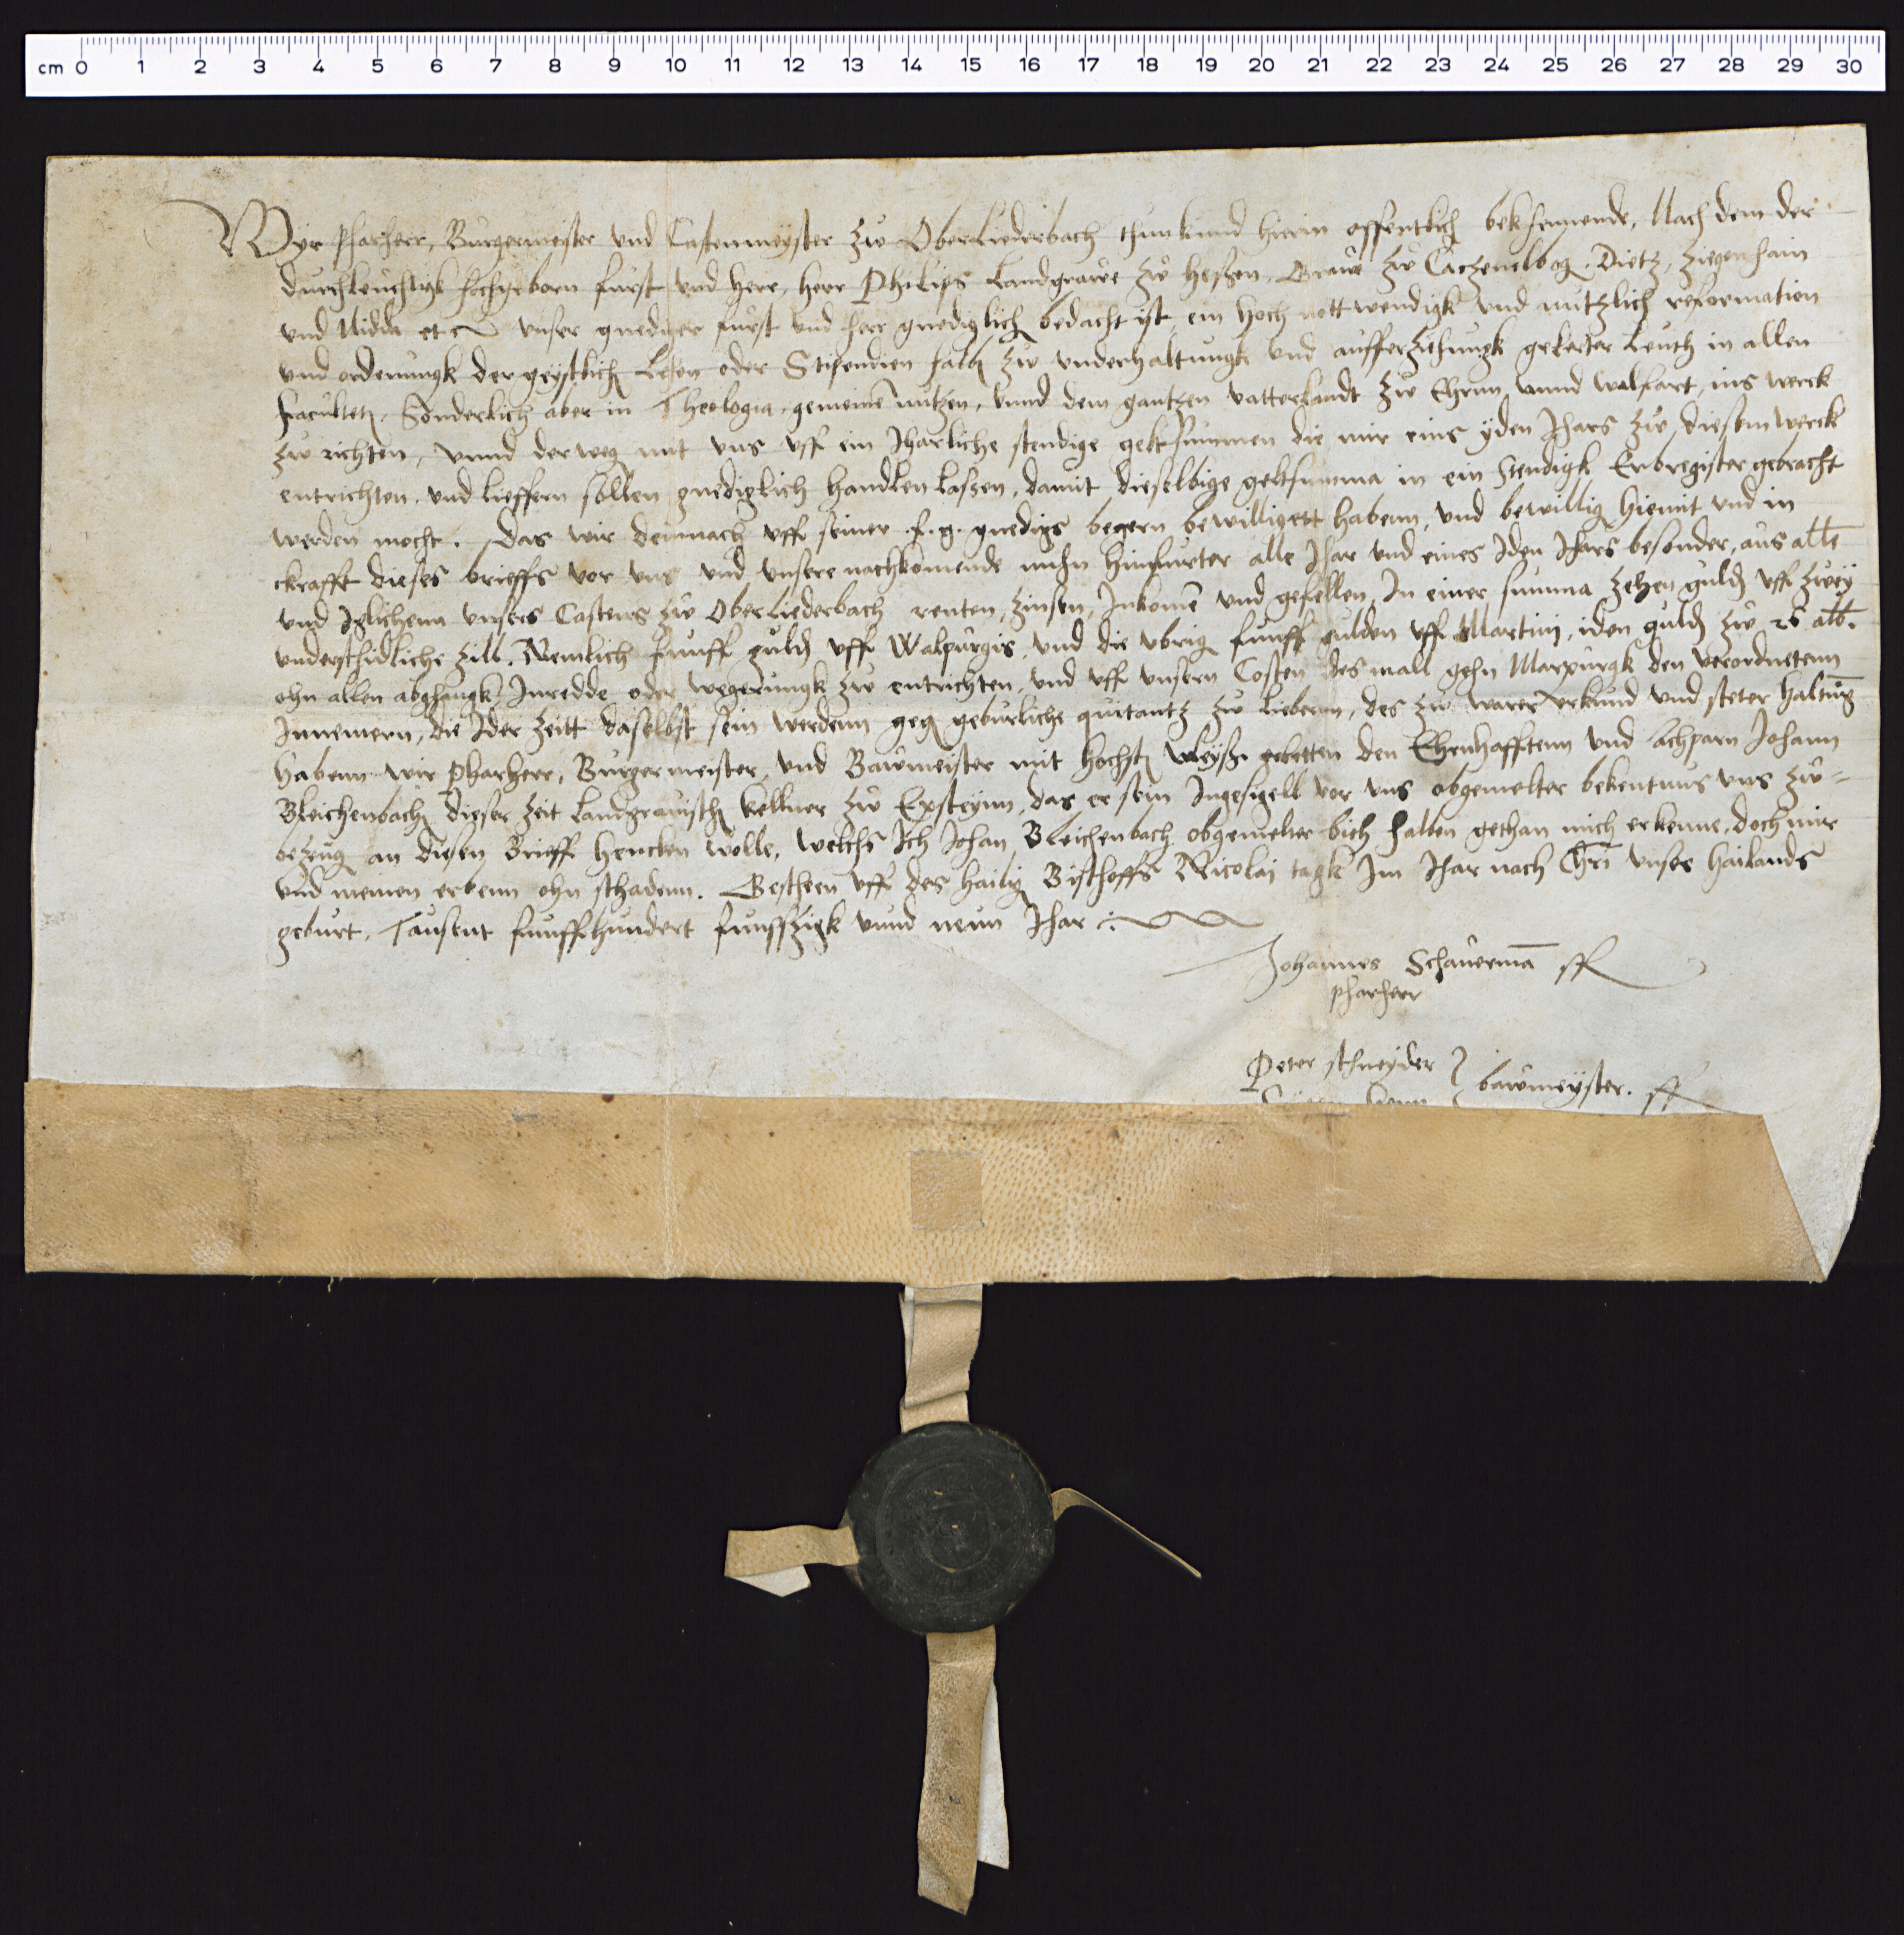 cm 0 1 2 3 4 5 6 7 8 9 10 11 12 13 14 15 16 17 18 19 20 21 22 23 24 25 26 27 28 29 30
Wyr Pharherr, Burgermeister und Castenmeyster zw Oberliederbach thun kund hierin offentlich bekhennende, Nach dem der
durchleuchtigk hochgeborn furst und herr, herr Philips Landgrawe zw heßen, Grawe zw Catzenelbog, Dietz, Ziegenhain
und Nidda etc unser gnediger furst und herr gnediglich bedacht yst, ein hoch nottwendigk und nutzlich reformation
und ordenungk der geystlich Lehen oder Stipendien halb zw underhaltungk und aufferziehungk gelerter Leuth in allen
faculteten, Sonderlich aber in Theologia, gemeine nutzen, unnd dem gantzen vatterlandt zw Ehrnn unnd walfart, ins werck
zw richten, unnd der weg mit uns uff ein Jharliche stendige geltsummen die mir eins yden Jhars zw diesem werck
entrichten und lieffern sollen gnediglich handlen laßen, damit dieselbige geltsumma in ein stendigk Erbregister gebracht
werden mocht. Das wir demnach uff seiner f. g. gnedigs begern bewilligett habenn, und bewillig hiemit und in
ckrafft dieses brieffs vor uns und unsere nachkomende nuhn hinfurter alle Jhar und eines Jden Jhars besonder, aus alle
und Jglichenn unsers Castens zw Oberliederbach renten, zinsen, Inkome und gefellen, In einer summa zehen guld uff zwey
underschidliche zill. Nemlich funff guld uff Walpurgis, und die ubrig funff gulden uff Martini, iden guld zw 26 alb.
ohn allen abghangk, Inredde oder wegerungk zw entrichten, und uff unsern Costen des mall gehn Marpurgk den verordnetenn
Innemern, die Jder zeitt daselbst sein werdenn geg geburliche quitantz zw liebern, des zw warer urkund und steter haltung
habenn wir Pharherr, Burgermeister, und Bawmeister mit hochst vleyß gebetten den Ehrnhafftenn und achparn Johann
Bleichenbach dieser zeit landgravisch kellner zw Epsteynn, das er sein Ingesigell vor uns obgemelter bekentnus uns zw=
bezeug an diesen Brieff hencken wolle, welchs Ich Johan Bleichenbach obgemelter bieth halben gethan mich erkenne, doch mir
und meinen erbenn ohn schadenn. Gescheen uff des hailig Bischoffs Nicolaj tagk Im Jhar nach Chri unsers hailands
geburt, Tausent funffhundert funffzigk unnd neun Jhar
Johannes Schauerma
pharherr
Peter schneyder } bawmeyster.